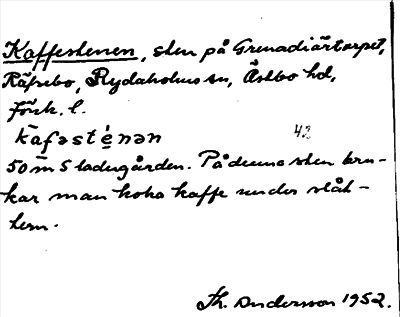 Kaffestenen, sten på Grenadiärtorpet,
Räfsebo, Rydaholms sn, Östbo hd,
Jönk. l.
kafəsténən 42
50 m S ladugården. På denna sten bru-
kar man koka kaffe under slåt-
tern.
Th. Andersson 1952.